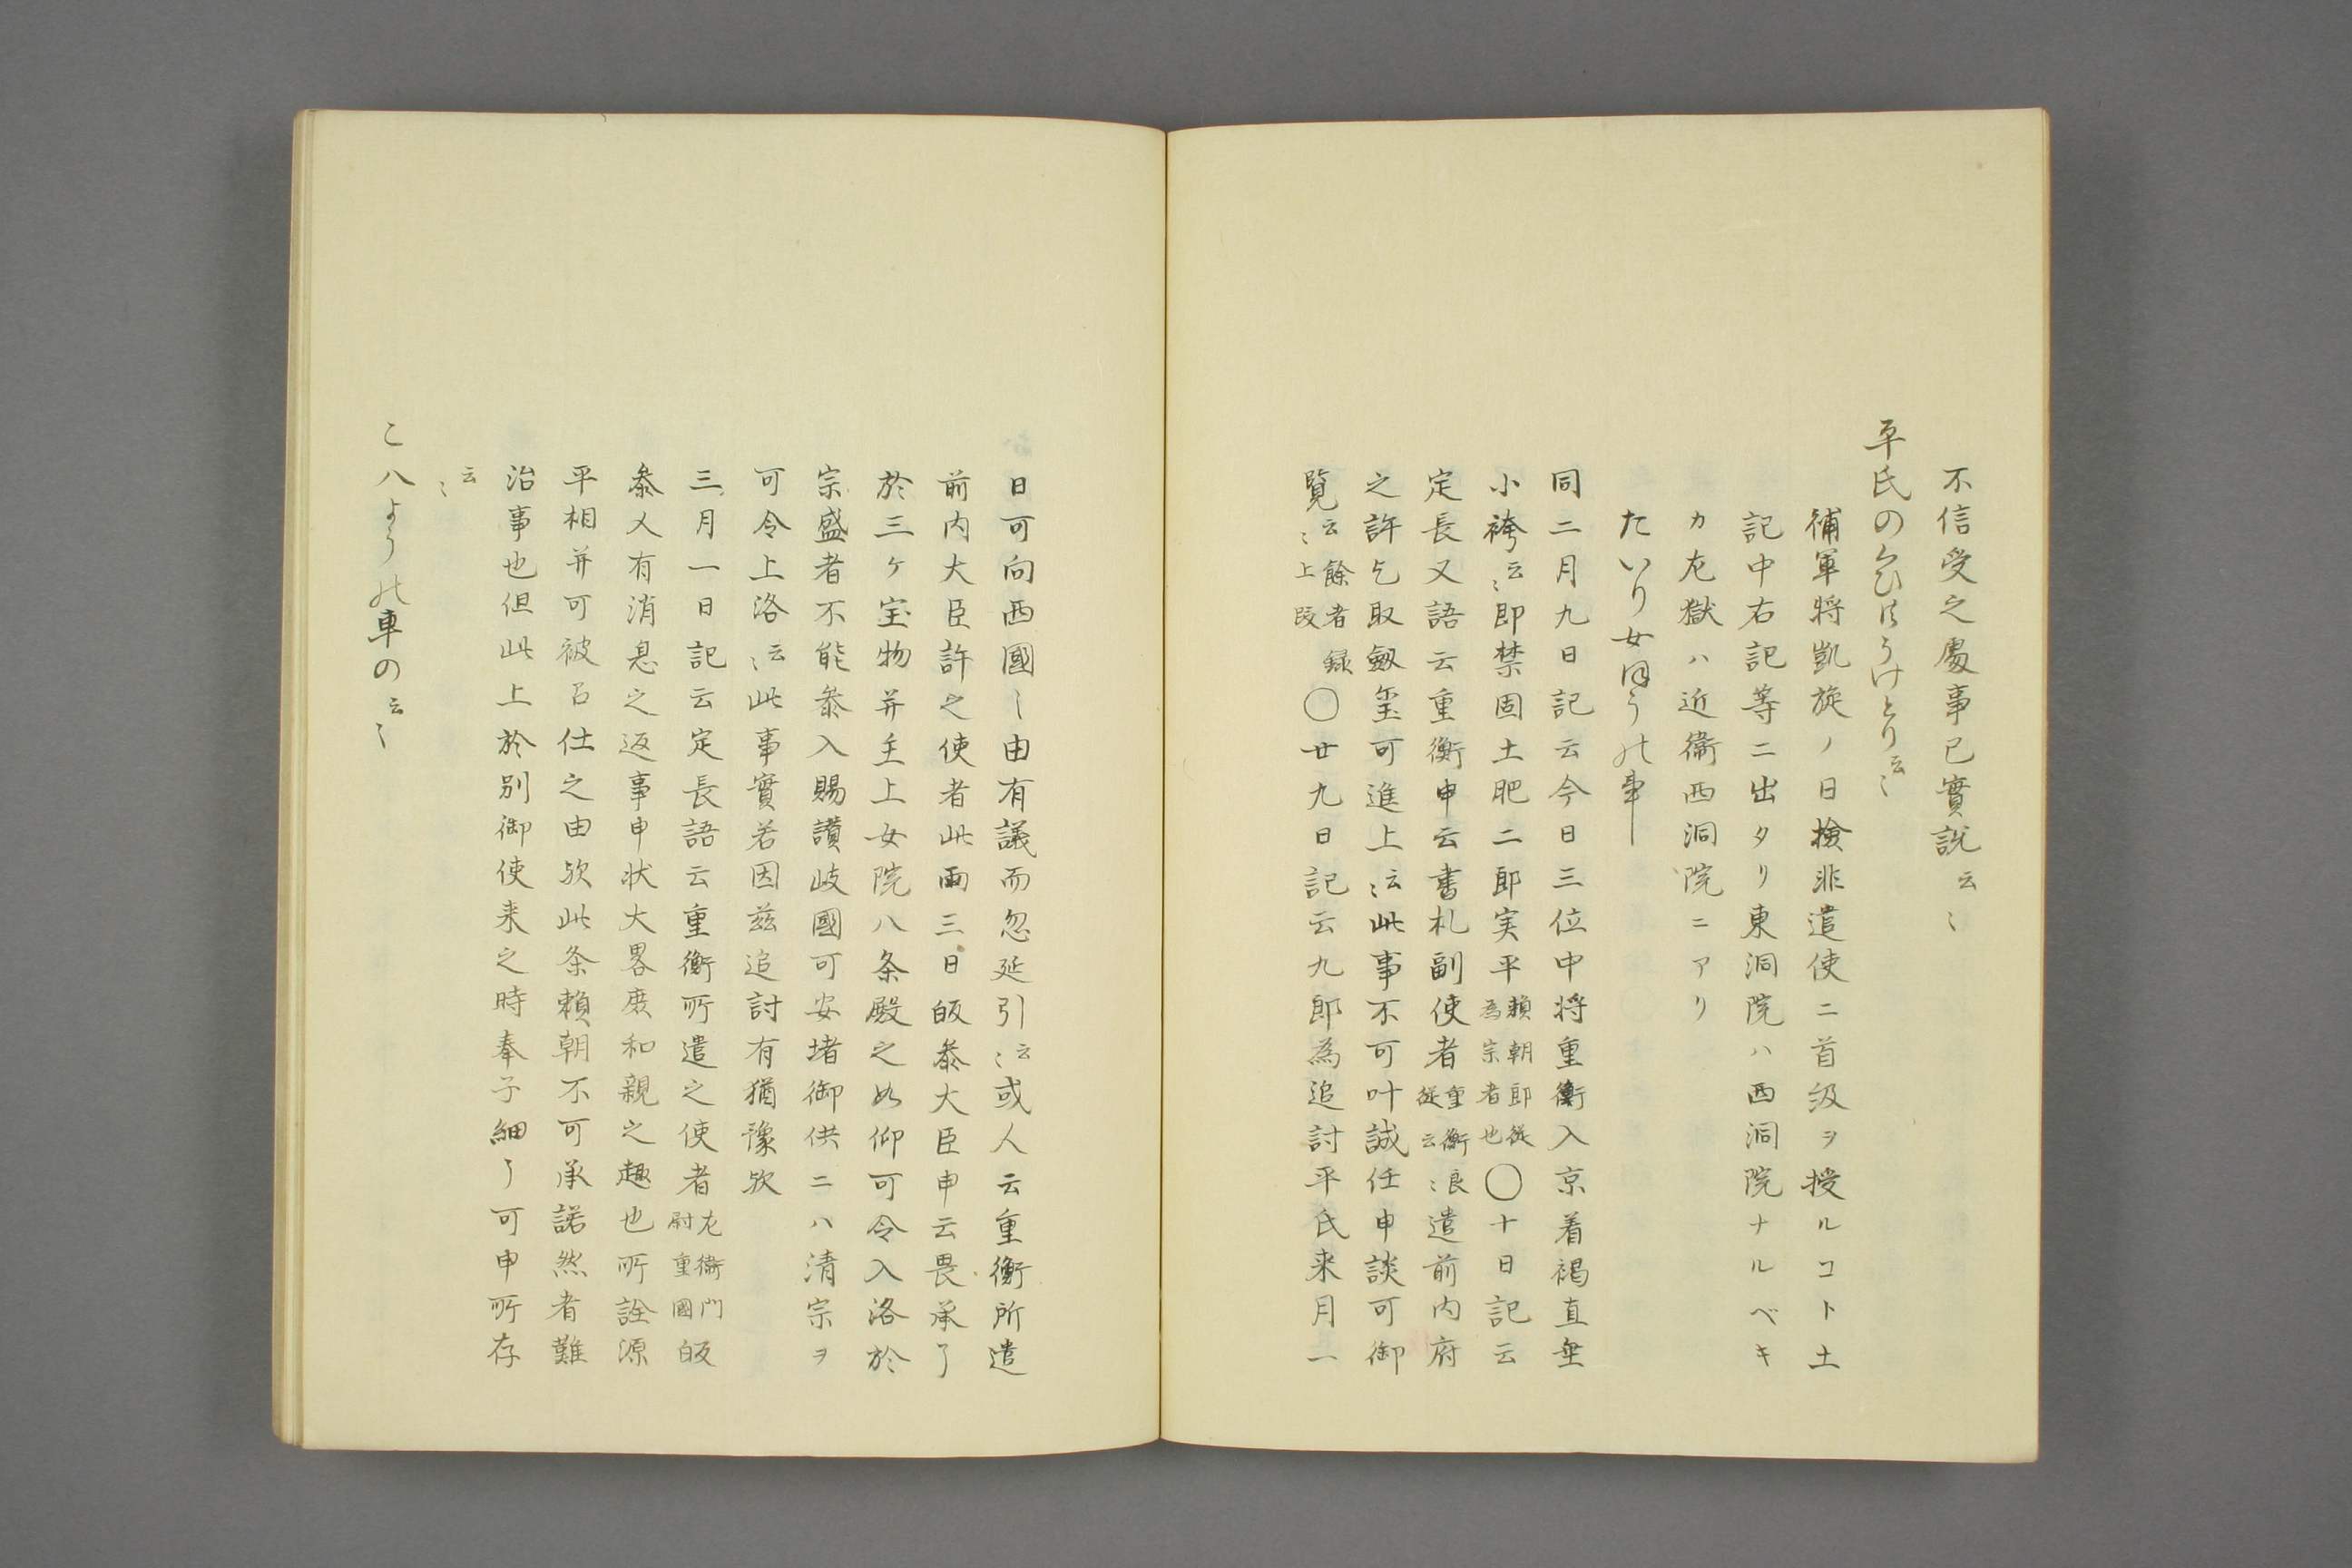 不信受之處事已實說云〻
平氏のくひはうけとり云〻
補軍將凱旋ノ日撿非遣使ニ首級ヲ授ルコト土
記中右記等ニ出タリ東洞院ハ西洞院ナルベキ
カ左獄ハ近衞西洞院ニアリ
たいり女ほうの事
同二月九日記云今日三位中将重衡入京着褐直垂
小袴云〻即禁固土肥二郎実平頼朝郎従為宗者也〇十日記云
定長又語云重衡申云書札副使者重衡郎従云〻遣前内府
之許乞取劔璽可進上云〻此事不可叶誠任申談可御
覧云〻餘者録上段〇廿九日記云九郎為追討平氏来月一
日可向西國之由有議而忽延引云〻或人云重衡所遣
前内大臣許之使者此兩三日皈叅大臣申云畏承了
於三ケ宝物并主上女院八条殿之如仰可令入洛於
宗盛者不能叅入賜讃岐國可安堵御供ニハ清宗ヲ
可令上洛云〻此事實若因茲追討有猶豫欤
三月一日記云定長語云重衡所遣之使者左衞門尉重國皈
叅又有消息之返事申状大畧庶和親之趣也所詮源
平相并可被召仕之由欤此条頼朝不可承諾然者難
治事也但此上於別御使来之時奉子細了可申所存
云〻
こ八ようの車の云〻